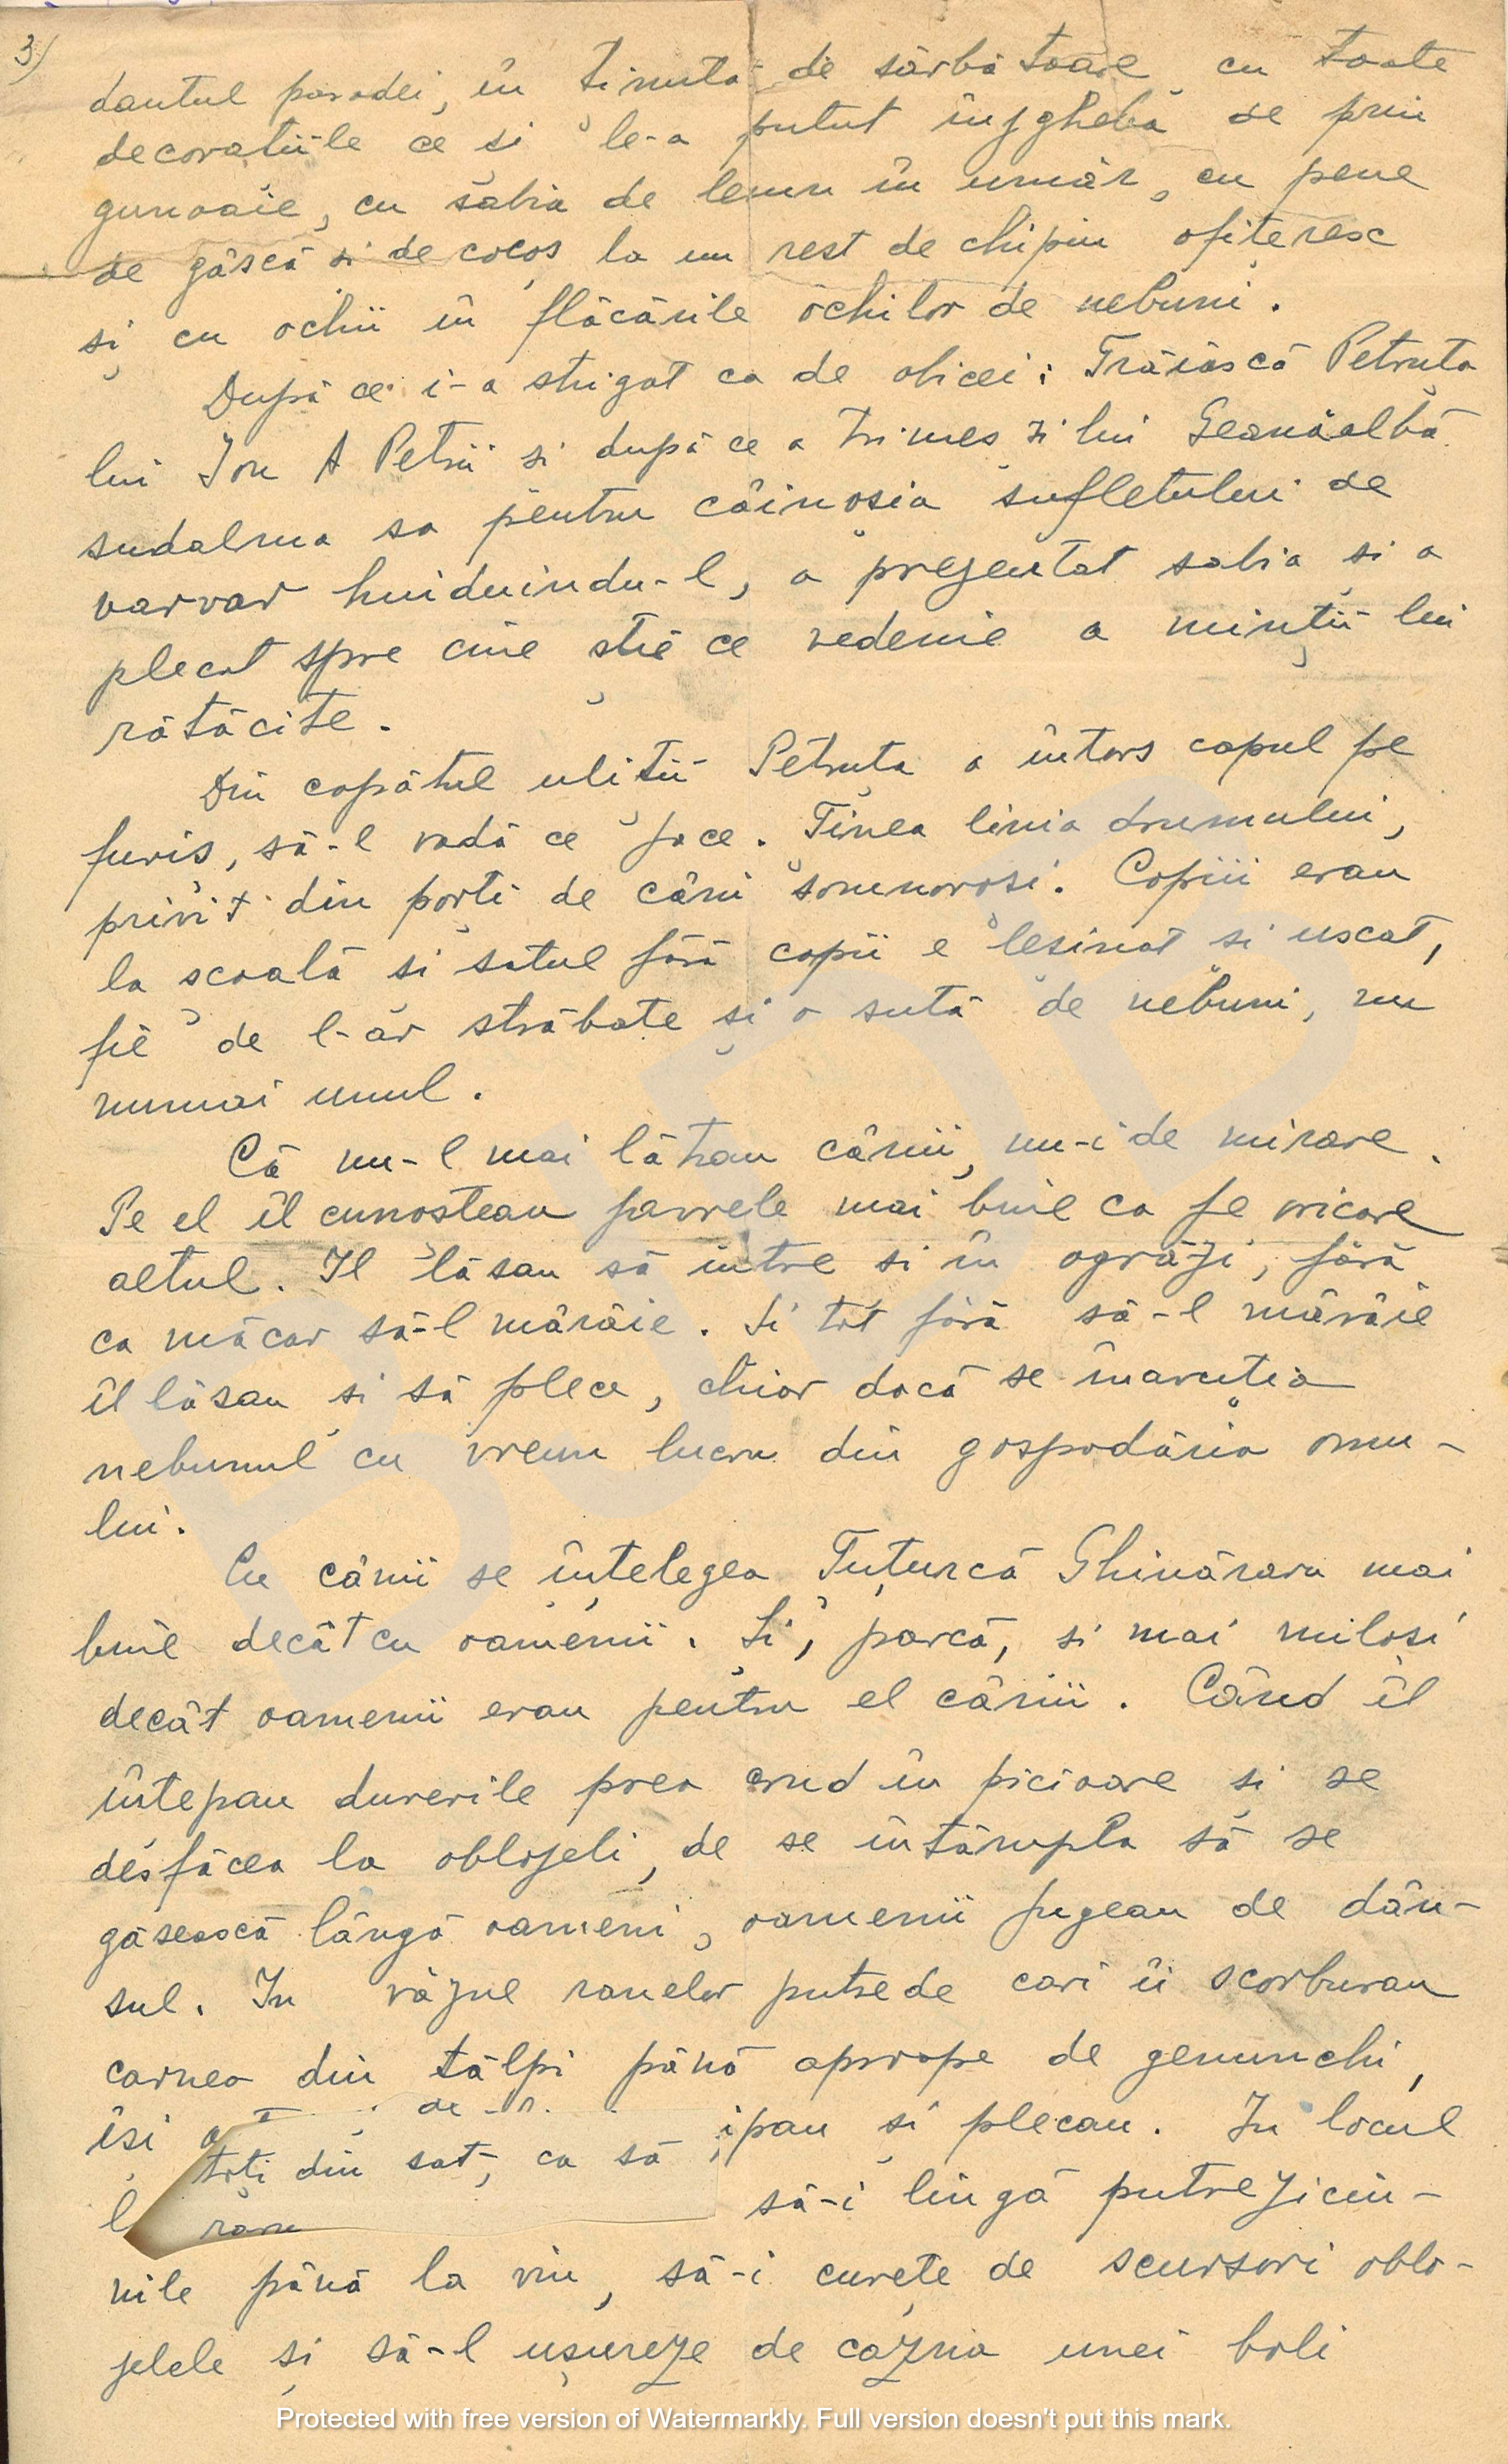 3/
dantul paradei, în ținuta de sărbătoare cu toate
decorațiile ce și le-a putut înjgheba de prin
gunoaie, cu sabia de lemn în umăr, cu pene
de gâscă și de cocoș la un rest de chipiu ofițeresc
și cu ochii în flăcările ochilor de nebuni.
După ce i-a strigat ca de obicei: Trăiască Petruța
lui Ion A Petrii și după ce a trimes și lui Geanăalbă
sudalma sa pentru câinoșia sufletului de
varvar huiduindu-l, a prezentat sabia și a
plecat spre cine știe ce vedenie a minții lui
rătăcite.
Din capătul uliții Petruța a întors capul pe
furiș, să-l vadă ce face. Ținea linia drumului,
privit din porți de câni somnoroși. Copiii erau
la școală și satul fără copii e leșinat și uscat,
fie de l-ar străbate și o sută de nebuni, nu
numai unul.
Că nu-l mai lătrau cânii, nu-i de mirare.
Pe el îl cunoșteau javrele mai bine ca pe oricare
altul. Il lăsau să intre și în ogrăzi, fără
ca măcar să-l mârâie. Și tot fără să-l mârâie
îl lăsau și să plece, chiar dacă se înavuția
nebunul cu vreun lucru din gospodăria omu-
lui.
Cu cânii se înțelegea Țuțurcă Ghinăraru mai
bine decât cu oamenii. Și, parcă, și mai miloși
decât oamenii erau pentru el cânii. Când îl
înțepau durerile prea crud în picioare și se
desfăcea la oblojeli, de se întâmpla să se
găsească lângă oameni, oamenii fugeau de dân-
sul. In văzul ranelor putrede cari îi scorburau
carnea din tălpi până aproape de genunchi,
își ipau și plecau. In locul
toți din sat, ca să
l să-i lingă putreziciu-
nile până la viu, să-i curețe de scursori oblo-
jelele și să-l ușureze de cazna unei boli
Protected with free version of Watermarkly. Full version doesn't put this mark.